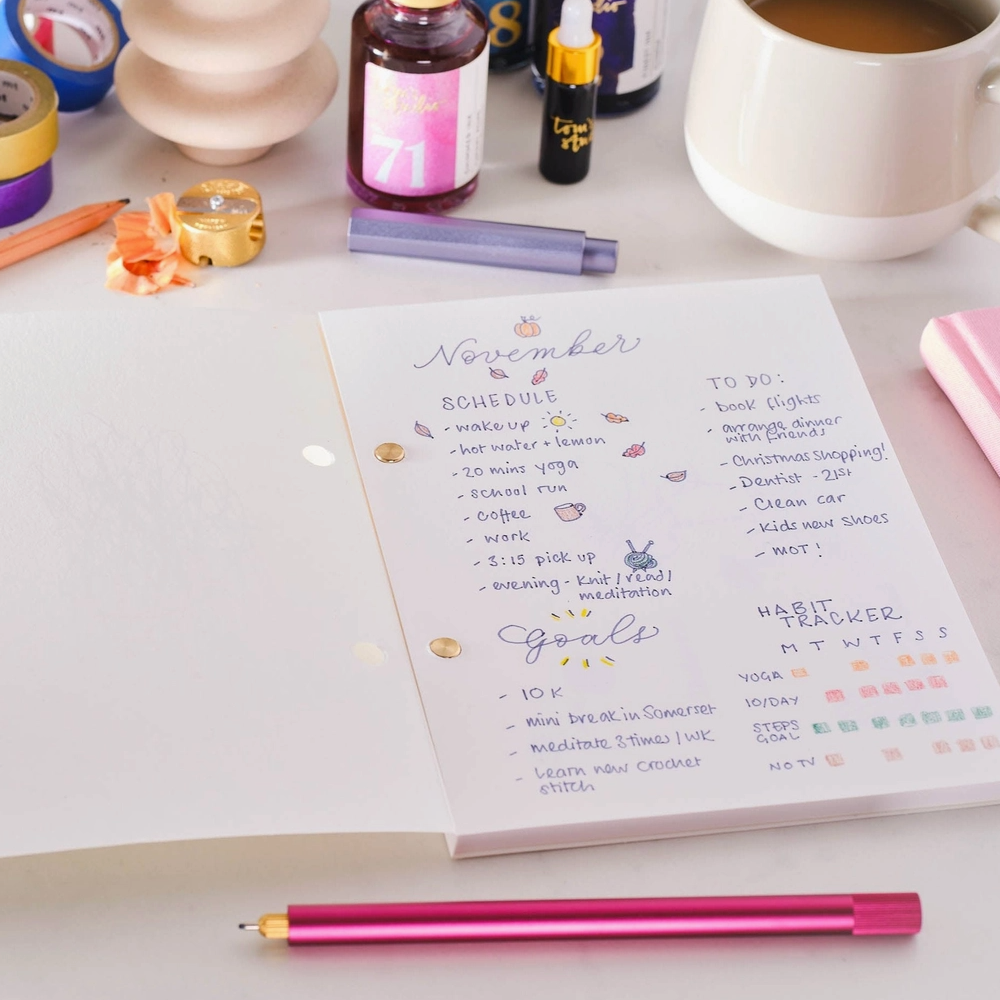 8
71
tom's
November
SCHEDULE
- wake up
- hot water + lemon
- 20 mins yoga
- school run
- coffee
- work
- 3:15 pick up
- evening - Knit / read /
meditation
TO DO:
- book flights
- arrange dinner
with friends
- Christmas Shopping!
- Dentist - 21st
- Clean car
- Kids new shoes
- MOT!
Goals
- 10K
- mini break in Somerset
- meditate 3 times / WK
- Learn new crochet
stitch
HABIT
TRACKER
M T W T F S S
YOGA
10/DAY
STEPS
GOAL
NO TV